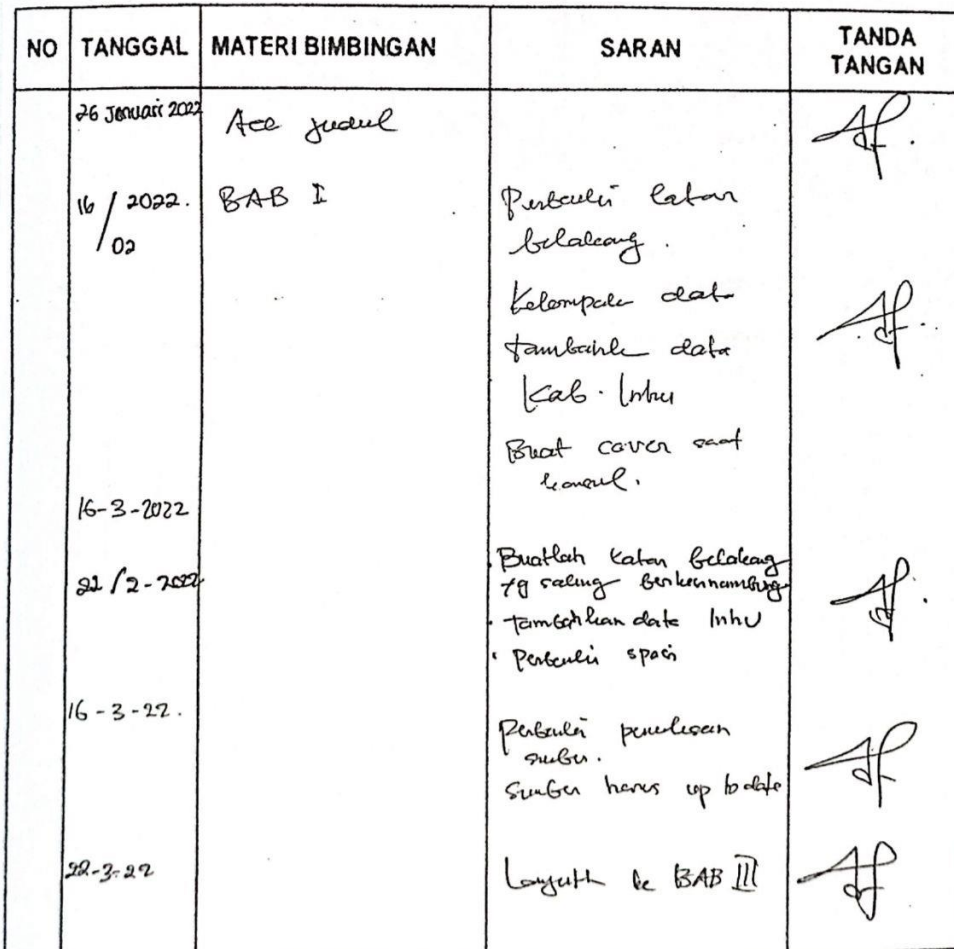 NO TANGGAL MATERI BIMBINGAN SARAN TANDA TANGAN
26 Januari 2022 Acc judul
16/02 2022. BAB I Perbaiki latar
belakang.
Kelompok data
tambah data
Kab. Inhu
Buat cover saat
konsul.
16-3-2022
22/2-2022 Buatlah latar belakang
yg saling berkesinambung
tambahkan data Inhu
Perbaiki spasi
16-3-22. Perbaiki penulisan
sumber.
Sumber harus up to date
22-3-22 Lanjut ke BAB III